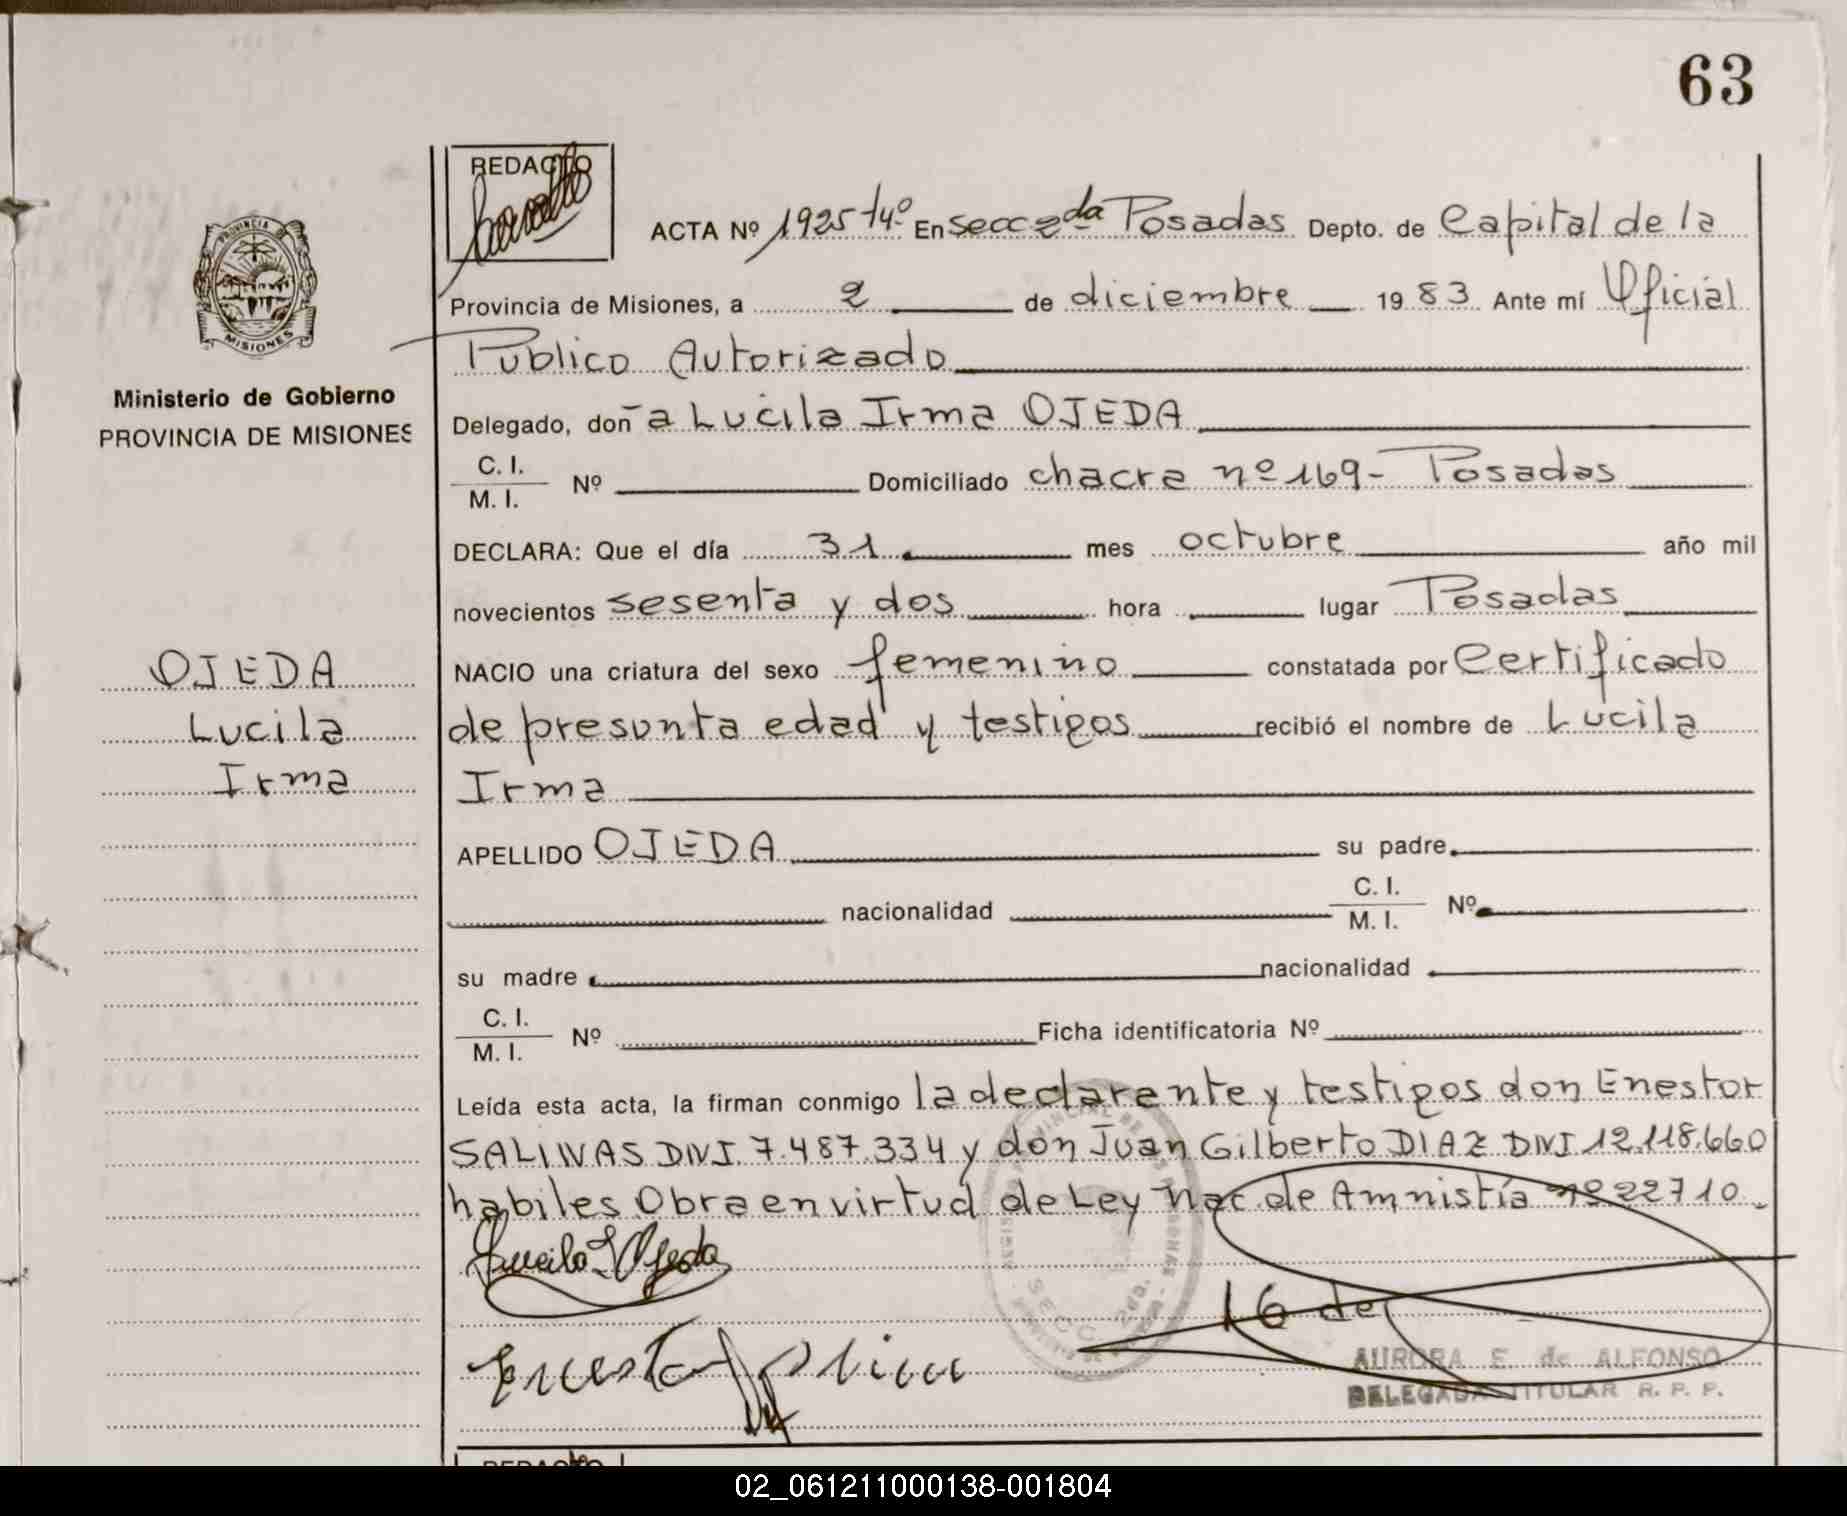 63
REDACTO
ACTA Nº 1925 t4º En secc 2da Posadas Depto. de Capital de la
PROVINCIA DE
MISIONES
Provincia de Misiones, a 2 de diciembre 19 83 Ante mí Oficial
Publico Autorizado
Ministerio de Gobierno
PROVINCIA DE MISIONES
Delegado, don~a Lucila Irma OJEDA
C. I.
M. I. Nº Domiciliado chacra nº 169- Posadas
DECLARA: Que el día 31 mes octubre año mil
novecientos sesenta y dos hora lugar Posadas
NACIO una criatura del sexo femenino constatada por Certificado
OJEDA
Lucila
Irma
de presunta edad y testigos recibió el nombre de Lucila
Irma
APELLIDO OJEDA su padre
nacionalidad C. I.
M. I. Nº
su madre nacionalidad
C. I.
M. I. Nº Ficha identificatoria Nº
Leída esta acta, la firman conmigo la declarante y testigos don Enestor
SALINAS DNI 7.487.334 y don Juan Gilberto DIAZ DNI 12.118.660
habiles Obra en virtud de Ley Nac. de Amnistía nº 22710.
Lucila I Ojeda
16 de
SECC. 2da.
AURORA E. de ALFONSO
DELEGADA TITULAR R. P. P.
REDACTO
02_061211000138-001804